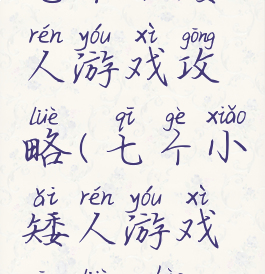 rén yóu xì gōng
人游戏攻
lüè qī gè xiǎo
略(七个小
ǎi rén yóu xì
矮人游戏